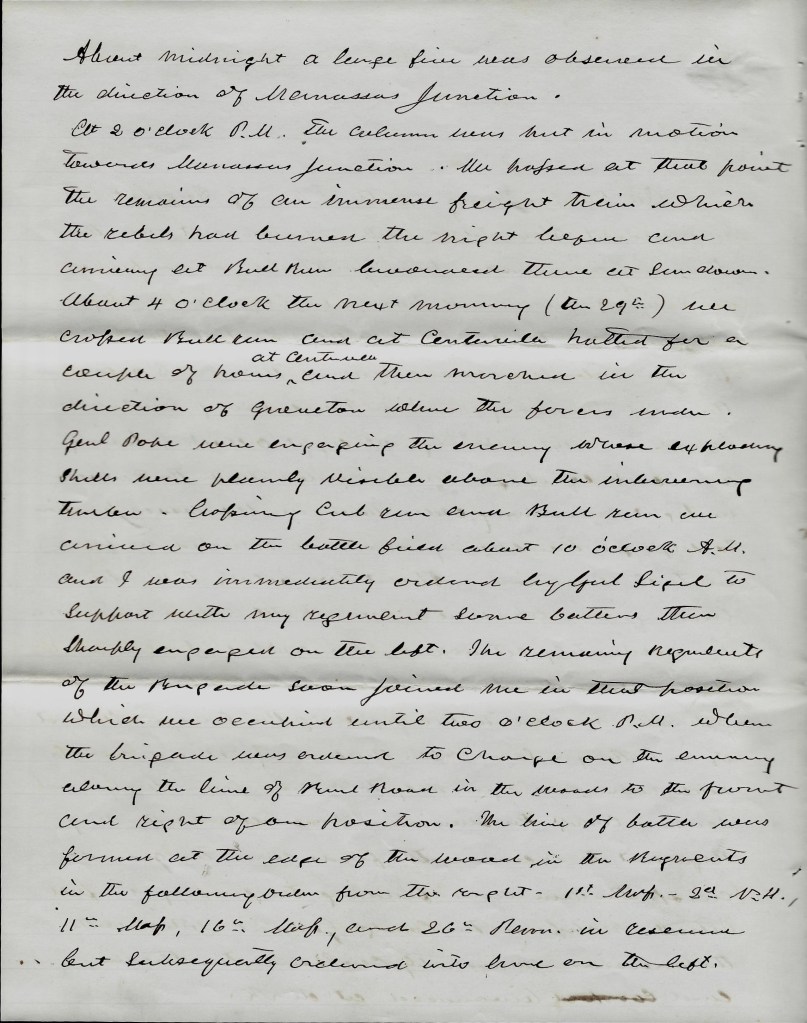 About midnight a large fire was observed in
the direction of Manassas Junction.
At 2 o'clock P.M. the column was put in motion
towards Manassas Junction. We passed at that point
the remains of an immense freight train which
the rebels had burned the night before and
arriving at Bull Run bivouaced there at sun down.
About 4 o'clock the next morning (the 29th) we
crossed Bull run and at Centerville halted for a
at Centerville
couple of hours, and then marched in the
direction of Groveton where the forces under
Genl Pope were engaging the enemy whose exploding
shells were plainly visible above the intervening
timber. Crossing Cub run and Bull run we
arrived on the battle field about 10 o'clock A.M.
and I was immediately ordered by Genl Sigel to
support with my regiment some batteries then
sharply engaged on the left. The remaining Regiments
of the Brigade soon joined me in that position
which we occupied until two o'clock P.M. when
the brigade was ordered to charge on the enemy
along the line of Rail Road in the woods to the front
and right of our position. The line of battle was
formed at the edge of the wood in the Regiments
in the following order from the right - 1st Mass. - 2d N.H.,
11th Mass, 16th Mass., and 26th Penn. in reserve
but subsequently ordered into line on the left.